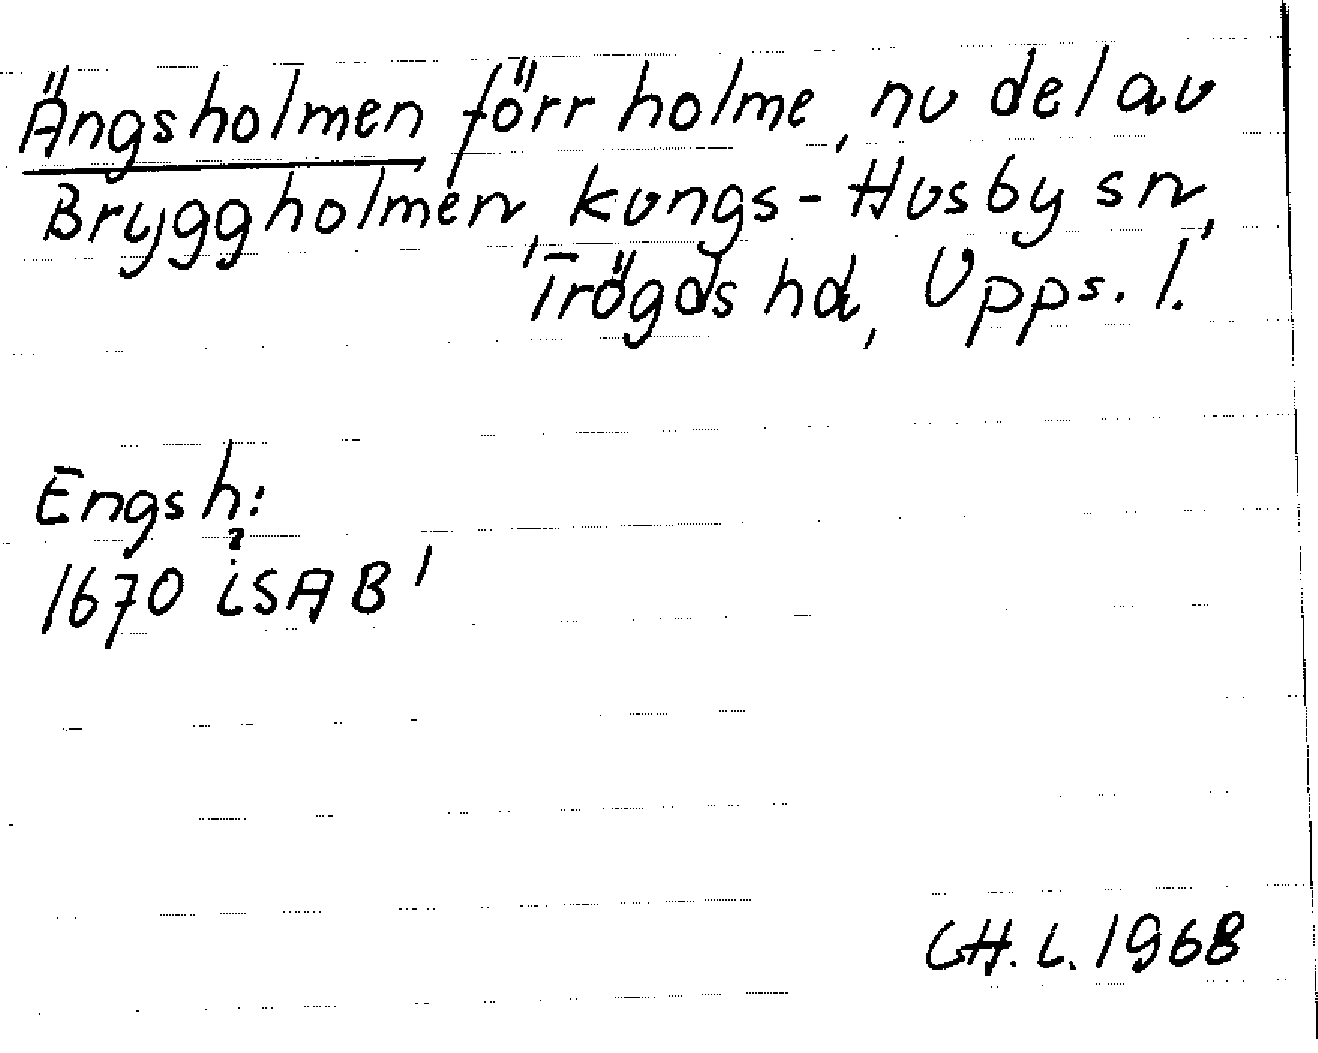 Ängsholmen förr holme, nu del av
Bryggholmen, Kungs-Husby sn,
Trögds hd, Upps. l.
Engsh:
?
1670 iSAB'
CH. L. 1968